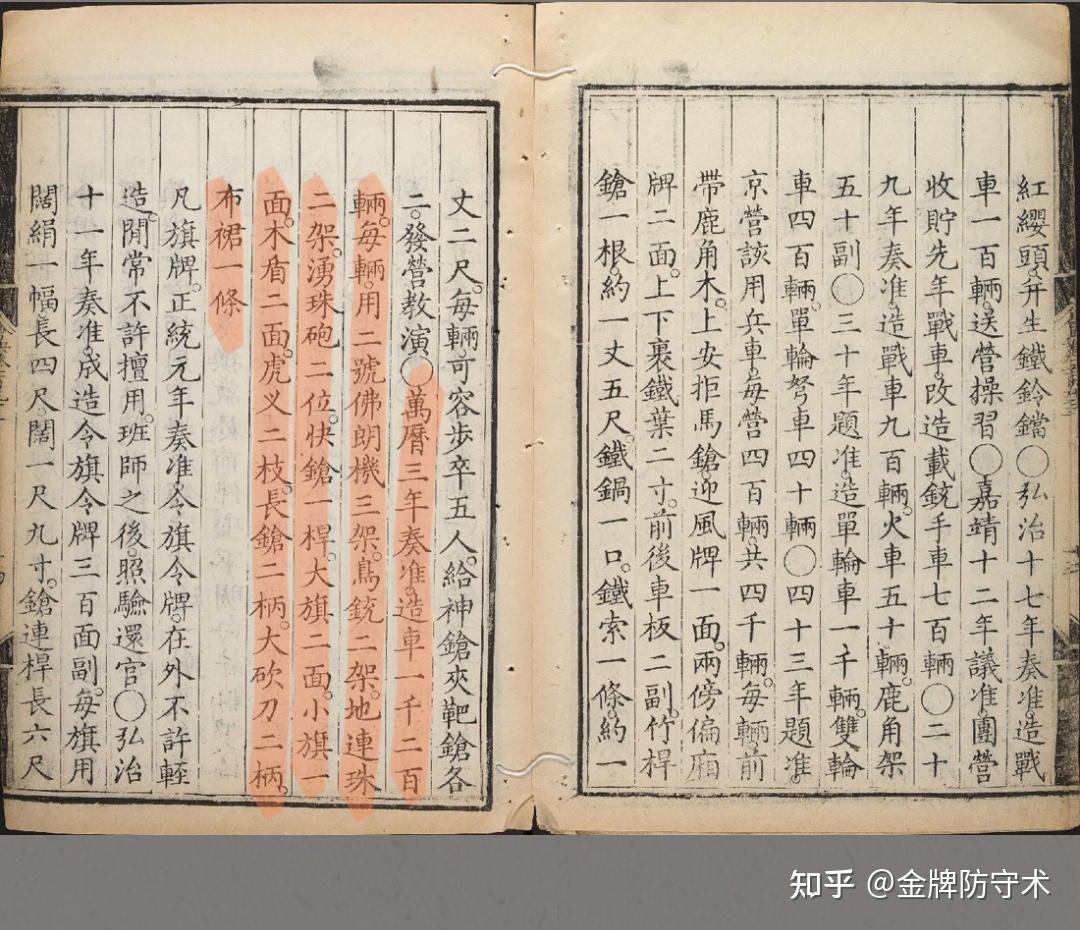 紅纓頭。幷生鐵鈴鐺〇弘治十七年奏准。造戰
車一百輛。送營操習〇嘉靖十二年議准。團營
收貯先年戰車。改造載銃手車七百輛〇二十
九年奏准。造戰車九百輛。火車五十輛。鹿角架
五十副〇三十年題准。造單輪車一千輛。雙輪
車四百輛。單輪弩車四十輛〇四十三年題准。
京營該用兵車。每營四百輛。共四千輛。每輛。前
帶鹿角木。上安拒馬鎗。迎風牌一面。兩傍偏廂
牌二面。上下裹鐵葉二寸。前後車板二副。竹桿
鎗一根。約一丈五尺。鐵鍋一口。鐵索一條。約一
丈二尺。每輛可容步卒五人。給神鎗夾靶鎗各
二。發營教演〇萬曆三年奏准。造車一千二百
輛。每輛。用二號佛朗機三架。鳥銃二架。地連珠
二架。湧珠砲二位。快鎗一桿。大旗二面。小旗一
面。木盾二面。虎乂二枝。長鎗二柄。大砍刀二柄。
布裙一條
凡旗牌。正統元年奏准。令旗令牌。在外不許輕
造。閒常不許擅用。班師之後。照驗還官〇弘治
十一年奏准。成造令旗令牌三百面副。每旗用
闊絹一幅。長四尺。闊一尺九寸。鎗連桿長六尺
知乎 @金牌防守术